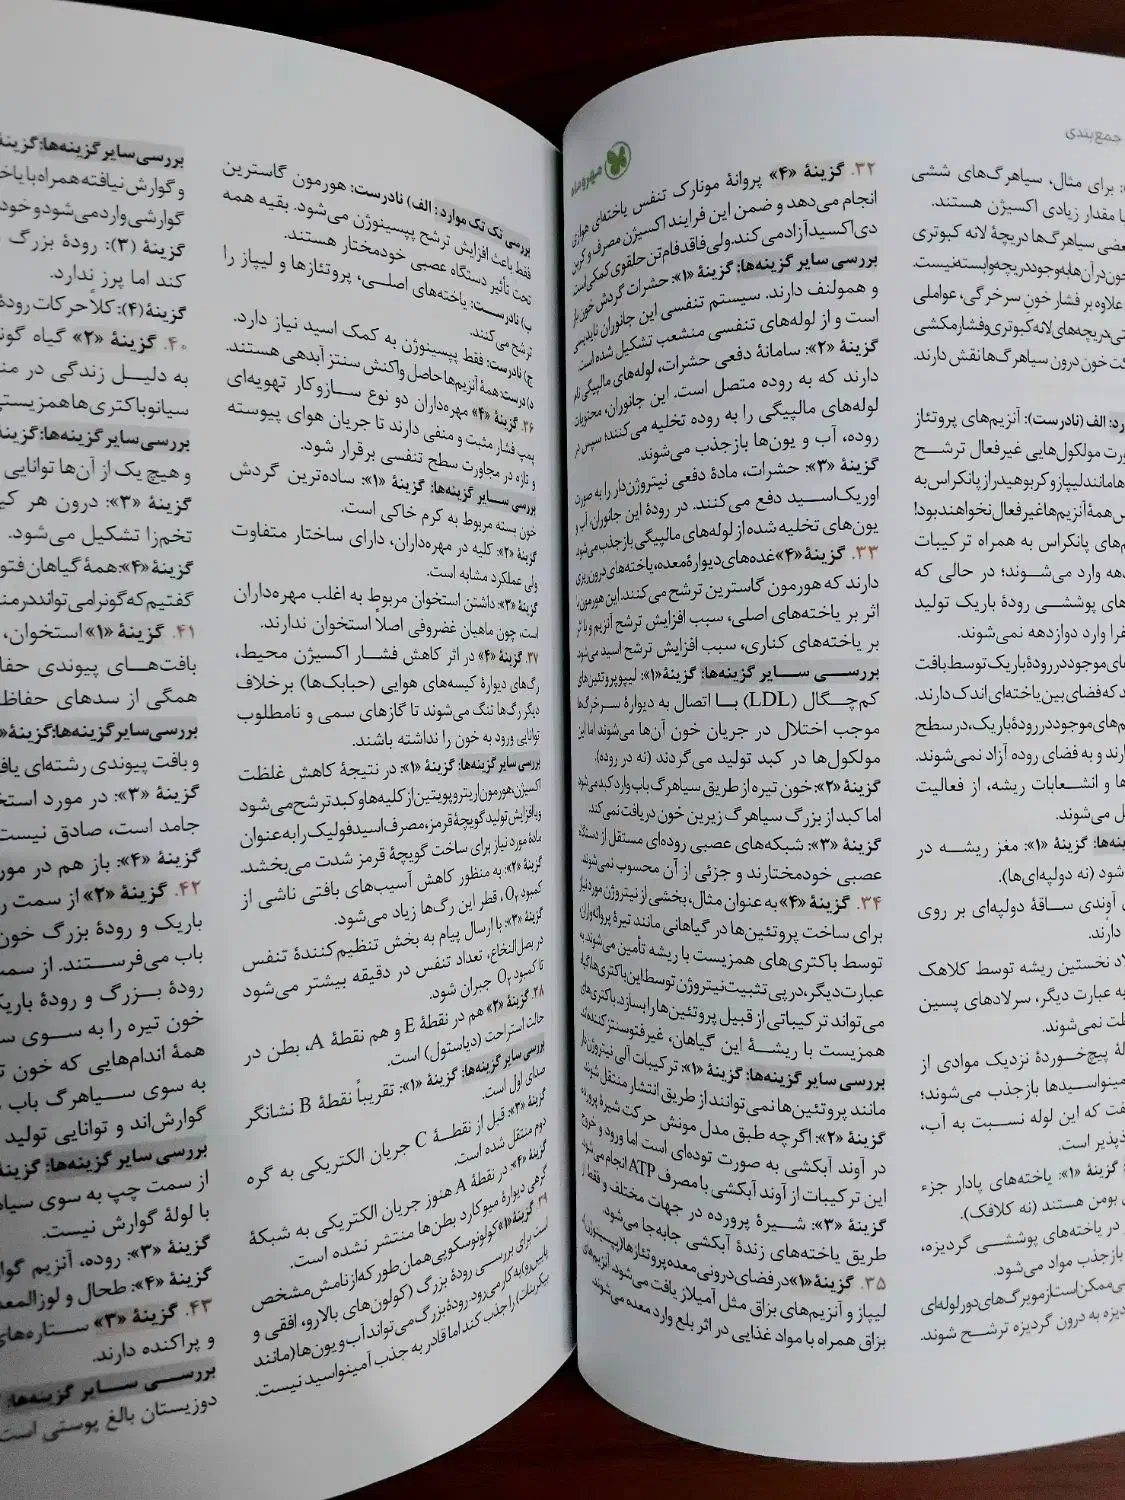 جمع‌بندی
: برای مثال، سیاهرگ‌های ششی
مقدار زیادی اکسیژن هستند.
سیاهرگ‌ها دریچهٔ لانه کبوتری
علاوه بر فشار خون سرخرگی، عواملی
دریچه‌های لانه کبوتری و فشار مکشی
خون درون سیاهرگ‌ها نقش دارند.
الف (نادرست): آنزیم‌های پروتئاز
مولکول‌هایی غیرفعال ترشح
مانند لیپاز و کربوهیدراز پانکراس به
همهٔ آنزیم‌ها غیرفعال نخواهند بود!
پانکراس به همراه ترکیبات
وارد می‌شوند؛ در حالی که
پوششی رودهٔ باریک تولید
وارد دوازدهه نمی‌شوند.
موجود در رودهٔ باریک توسط بافت
که فضای بین یاخته‌ای اندک دارند.
موجود در رودهٔ باریک، در سطح
و به فضای روده آزاد نمی‌شوند.
و انشعابات ریشه، از فعالیت
می‌شوند.
گزینهٔ «۱»: مغز ریشه در
(نه دولپه‌ای‌ها).
آوندی ساقهٔ دولپه‌ای بر روی
دارند.
نخستین ریشه توسط کلاهک
به عبارت دیگر، سرلادهای پسین
نمی‌شوند.
پیچ‌خوردهٔ نزدیک موادی از
بازجذب می‌شوند؛
که این لوله نسبت به آب،
است.
گزینهٔ «۱»: یاخته‌های پادار جزء
بومن هستند (نه کلافک).
در یاخته‌های پوششی گردیزه،
بازجذب مواد می‌شود.
ممکن است از مویرگ‌های دور لوله‌ای
به درون گردیزه ترشح شوند.
مهروماه
۳۲. گزینهٔ «۴» پروانهٔ مونارک تنفس یاخته‌ای هوازی
انجام می‌دهد و ضمن این فرایند اکسیژن مصرف و کربن
دی‌اکسید آزاد می‌کند. ولی فاقد فام‌تن حلقوی کمکی است.
بررسی سایر گزینه‌ها: گزینهٔ «۱»: حشرات گردش خون باز
و همولنف دارند. سیستم تنفسی این جانوران نایدیسی
است و از لوله‌های تنفسی منشعب تشکیل شده است.
گزینهٔ «۲»: سامانهٔ دفعی حشرات، لوله‌های مالپیگی نام
دارند که به روده متصل است. این جانوران، محتویات
لوله‌های مالپیگی را به روده تخلیه می‌کنند؛ سپس در
روده، آب و یون‌ها بازجذب می‌شوند.
گزینهٔ «۳»: حشرات، مادهٔ دفعی نیتروژن‌دار را به صورت
اوریک‌اسید دفع می‌کنند. در رودهٔ این جانوران، آب و
یون‌های تخلیه شده از لوله‌های مالپیگی بازجذب می‌شود.
۳۳. گزینهٔ «۴» غده‌های دیوارهٔ معده، یاخته‌های درون‌ریزی
دارند که هورمون گاسترین ترشح می‌کنند. این هورمون با
اثر بر یاخته‌های اصلی، سبب افزایش ترشح آنزیم و با اثر
بر یاخته‌های کناری، سبب افزایش ترشح اسید می‌شود.
بررسی سایر گزینه‌ها: گزینهٔ «۱»: لیپوپروتئین‌های
کم‌چگال (LDL) با اتصال به دیوارهٔ سرخرگ‌ها
موجب اختلال در جریان خون آن‌ها می‌شوند اما این
مولکول‌ها در کبد تولید می‌گردند (نه در روده).
گزینهٔ «۲»: خون تیره از طریق سیاهرگ باب وارد کبد می‌شود
اما کبد از بزرگ سیاهرگ زیرین خون دریافت نمی‌کند.
گزینهٔ «۳»: شبکه‌های عصبی روده‌ای مستقل از دستگاه
عصبی خودمختارند و جزئی از آن محسوب نمی‌شوند.
۳۴. گزینهٔ «۴» به عنوان مثال، بخشی از نیتروژن مورد نیاز
برای ساخت پروتئین‌ها در گیاهانی مانند تیرهٔ پروانه‌واران
توسط باکتری‌های همزیست با ریشه تأمین می‌شوند. به
عبارت دیگر، در پی تثبیت نیتروژن توسط این باکتری‌ها گیاه
می‌تواند ترکیباتی از قبیل پروتئین‌ها را بسازد. باکتری‌های
همزیست با ریشهٔ این گیاهان، غیرفتوسنتزکننده‌اند.
بررسی سایر گزینه‌ها: گزینهٔ «۱»: ترکیبات آلی نیتروژن‌دار
مانند پروتئین‌ها نمی‌توانند از طریق انتشار منتقل شوند.
گزینهٔ «۲»: اگرچه طبق مدل مونش حرکت شیرهٔ پرورده
در آوند آبکشی به صورت توده‌ای است اما ورود و خروج
این ترکیبات از آوند آبکشی با مصرف ATP انجام می‌شود.
گزینهٔ «۳»: شیرهٔ پرورده در جهات مختلف و فقط از
طریق یاخته‌های زندهٔ آبکشی جابه‌جا می‌شود.
۳۵. گزینهٔ «۱» در فضای درونی معده پروتئازها (پپسینوژن)،
لیپاز و آنزیم‌های بزاق مثل آمیلاز یافت می‌شود. آنزیم‌های
بزاق همراه با مواد غذایی در اثر بلع وارد معده می‌شوند.
بررسی تک تک موارد: الف) نادرست: هورمون گاسترین
فقط باعث افزایش ترشح پپسینوژن می‌شود. بقیه همه
تحت تأثیر دستگاه عصبی خودمختار هستند.
ب) نادرست: یاخته‌های اصلی، پروتئازها و لیپاز را
ترشح می‌کنند.
ج) نادرست: فقط پپسینوژن به کمک اسید نیاز دارد.
د) درست: همهٔ آنزیم‌ها حاصل واکنش سنتز آبدهی هستند.
۳۶. گزینهٔ «۴» مهره‌داران دو نوع سازوکار تهویه‌ای
پمپ فشار مثبت و منفی دارند تا جریان هوای پیوسته
و تازه در مجاورت سطح تنفسی برقرار شود.
بررسی سایر گزینه‌ها: گزینهٔ «۱»: ساده‌ترین گردش
خون بسته مربوط به کرم خاکی است.
گزینهٔ «۲»: کلیه در مهره‌داران، دارای ساختار متفاوت
ولی عملکرد مشابه است.
گزینهٔ «۳»: داشتن استخوان مربوط به اغلب مهره‌داران
است، چون ماهیان غضروفی اصلاً استخوان ندارند.
۳۷. گزینهٔ «۴» در اثر کاهش فشار اکسیژن محیط،
رگ‌های دیوارهٔ کیسه‌های هوایی (حبابک‌ها) برخلاف
دیگر رگ‌ها تنگ می‌شوند تا گازهای سمی و نامطلوب
توانایی ورود به خون را نداشته باشند.
بررسی سایر گزینه‌ها: گزینهٔ «۱»: در نتیجهٔ کاهش غلظت
اکسیژن، هورمون اریتروپویتین از کلیه‌ها و کبد ترشح می‌شود
و با افزایش تولید گویچهٔ قرمز، مصرف اسید فولیک را به عنوان
مادهٔ مورد نیاز برای ساخت گویچهٔ قرمز شدت می‌بخشد.
گزینهٔ «۲»: به منظور کاهش آسیب‌های بافتی ناشی از
کمبود O₂، قطر این رگ‌ها زیاد می‌شود.
گزینهٔ «۳»: با ارسال پیام به بخش تنظیم‌کنندهٔ تنفس
در بصل‌النخاع، تعداد تنفس در دقیقه بیشتر می‌شود
تا کمبود O₂ جبران شود.
۳۸. گزینهٔ «۲» هم در نقطهٔ E و هم نقطهٔ A، بطن در
حالت استراحت (دیاستول) است.
بررسی سایر گزینه‌ها: گزینهٔ «۱»: تقریباً نقطهٔ B نشانگر
صدای اول است.
گزینهٔ «۳»: قبل از نقطهٔ C جریان الکتریکی به گره
دوم منتقل شده است.
گزینهٔ «۴»: در نقطهٔ A هنوز جریان الکتریکی به شبکهٔ
گرهی دیوارهٔ میوکارد بطن‌ها منتشر نشده است.
۳۹. گزینهٔ «۱» کولونوسکوپی همان طور که از نامش مشخص
است برای بررسی رودهٔ بزرگ (کولون‌های بالارو، افقی و
پایین‌رو) به کار می‌رود. رودهٔ بزرگ می‌تواند آب و یون‌ها (مانند
بیکربنات) را جذب کند اما قادر به جذب آمینواسید نیست.
بررسی سایر گزینه‌ها: گزینهٔ
و گوارش نیافته همراه با
گوارشی وارد می‌شود و خود
گزینهٔ (۳): رودهٔ بزرگ
کند اما پرز ندارد.
گزینهٔ (۴): کلاً حرکات رودهٔ
۴۰. گزینهٔ «۲» گیاه
به دلیل زندگی در
سیانوباکتری‌ها همزیستی
بررسی سایر گزینه‌ها:
و هیچ یک از آن‌ها توانایی
گزینهٔ «۳»: درون هر
تخم‌زا تشکیل می‌شود.
گزینهٔ «۴»: همهٔ گیاهان
گفتیم که گونرا می‌تواند در
۴۱. گزینهٔ «۱» استخوان،
بافت‌های پیوندی
همگی از سدهای
بررسی سایر گزینه‌ها: گزینهٔ
و بافت پیوندی رشته‌ای
گزینهٔ «۳»: در مورد
جامد است، صادق نیست
گزینهٔ «۴»: باز هم در مورد
۴۲. گزینهٔ «۲» از سمت
باریک و رودهٔ بزرگ خون
باب می‌فرستند. از
رودهٔ بزرگ و رودهٔ
خون تیره را به سوی
همهٔ اندام‌هایی که خون
به سوی سیاهرگ باب
گوارش‌اند و توانایی تولید
بررسی سایر گزینه‌ها: گزینهٔ
از سمت چپ به سوی
با لولهٔ گوارش نیست.
گزینهٔ «۳»: روده، آنزیم
گزینهٔ «۴»: طحال و
۴۳. گزینهٔ «۳» ستاره‌های
و پراکنده دارند.
بررسی سایر گزینه‌ها:
دوزیستان بالغ پوستی است